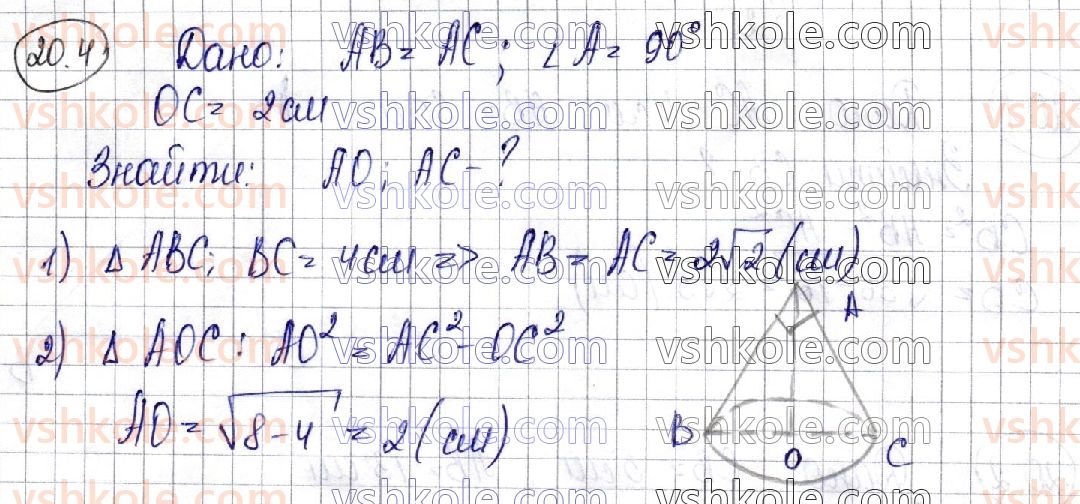 20.4
Дано: AB = AC; ∠A = 90°
OC = 2 см
Знайти: AO; AC - ?
1) Δ ABC; BC = 4 см => AB = AC = 2√2 (см)
2) Δ AOC: AO² = AC² - OC²
AO = √8-4 = 2 (см)
A
B
O
C
vshkole.com